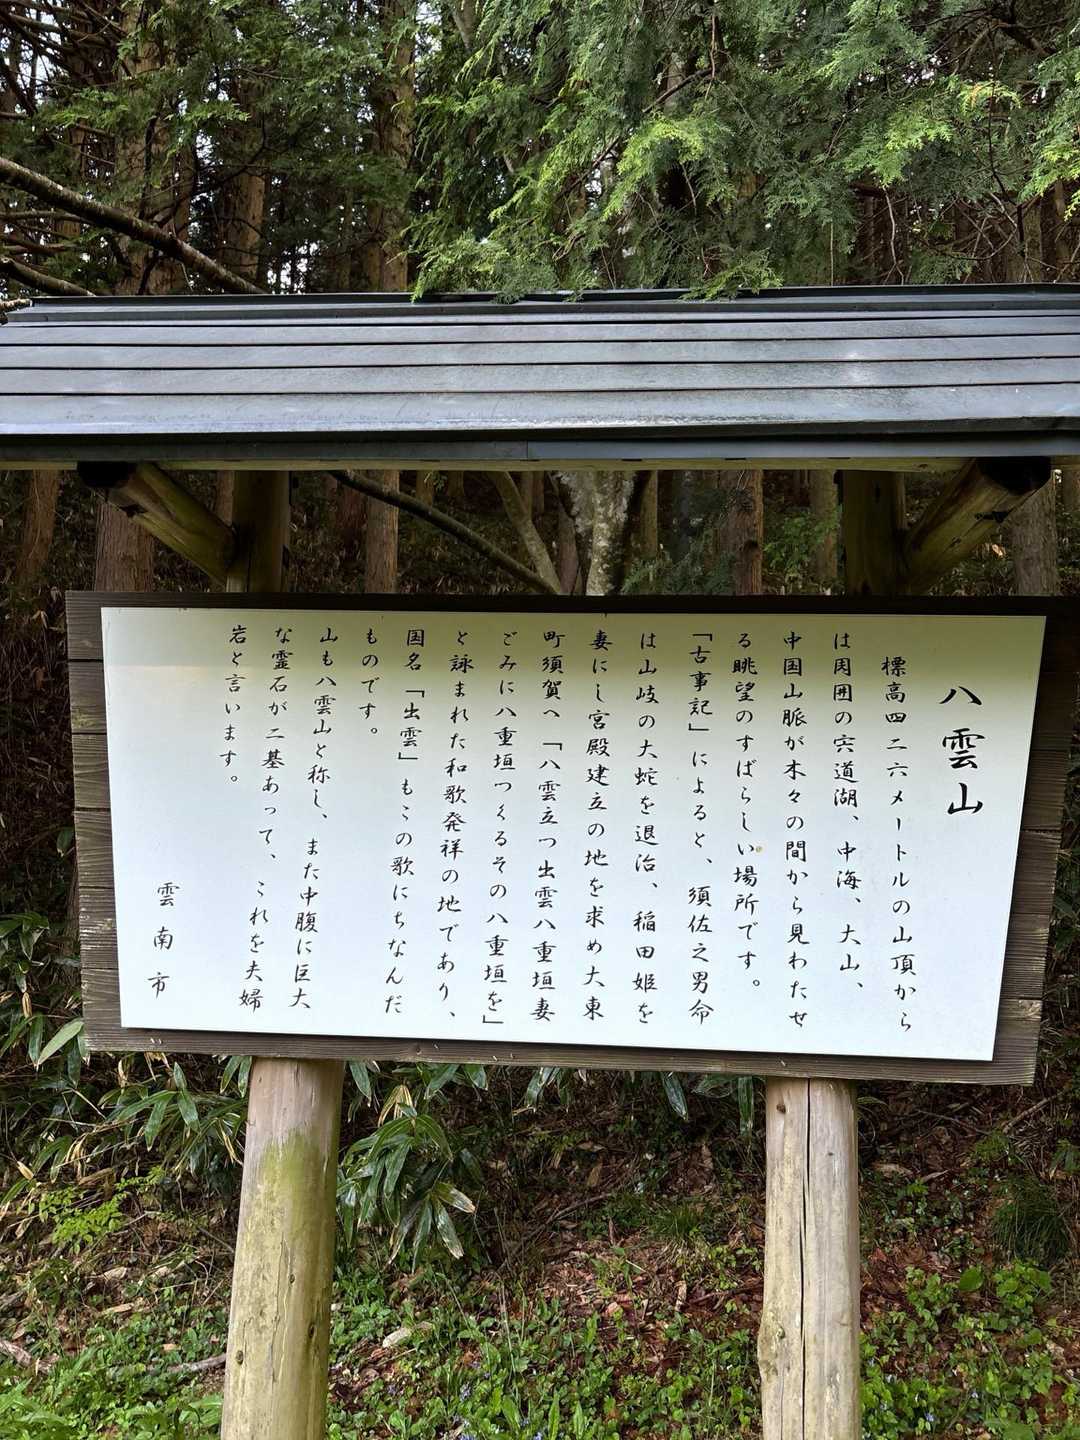 八雲山
標高四二六メートルの山頂から
は周囲の宍道湖、中海、大山、
中国山脈が木々の間から見わたせ
る眺望のすばらしい場所です。
「古事記」によると、須佐之男命
は山岐の大蛇を退治、稲田姫を
妻にし宮殿建立の地を求め大東
町須賀へ「八雲立つ出雲八重垣妻
ごみに八重垣つくるその八重垣を」
と詠まれた和歌発祥の地であり、
国名「出雲」もこの歌にちなんだ
ものです。
山も八雲山と称し、また中腹に巨大
な霊石が二基あって、これを夫婦
岩と言います。
雲南市